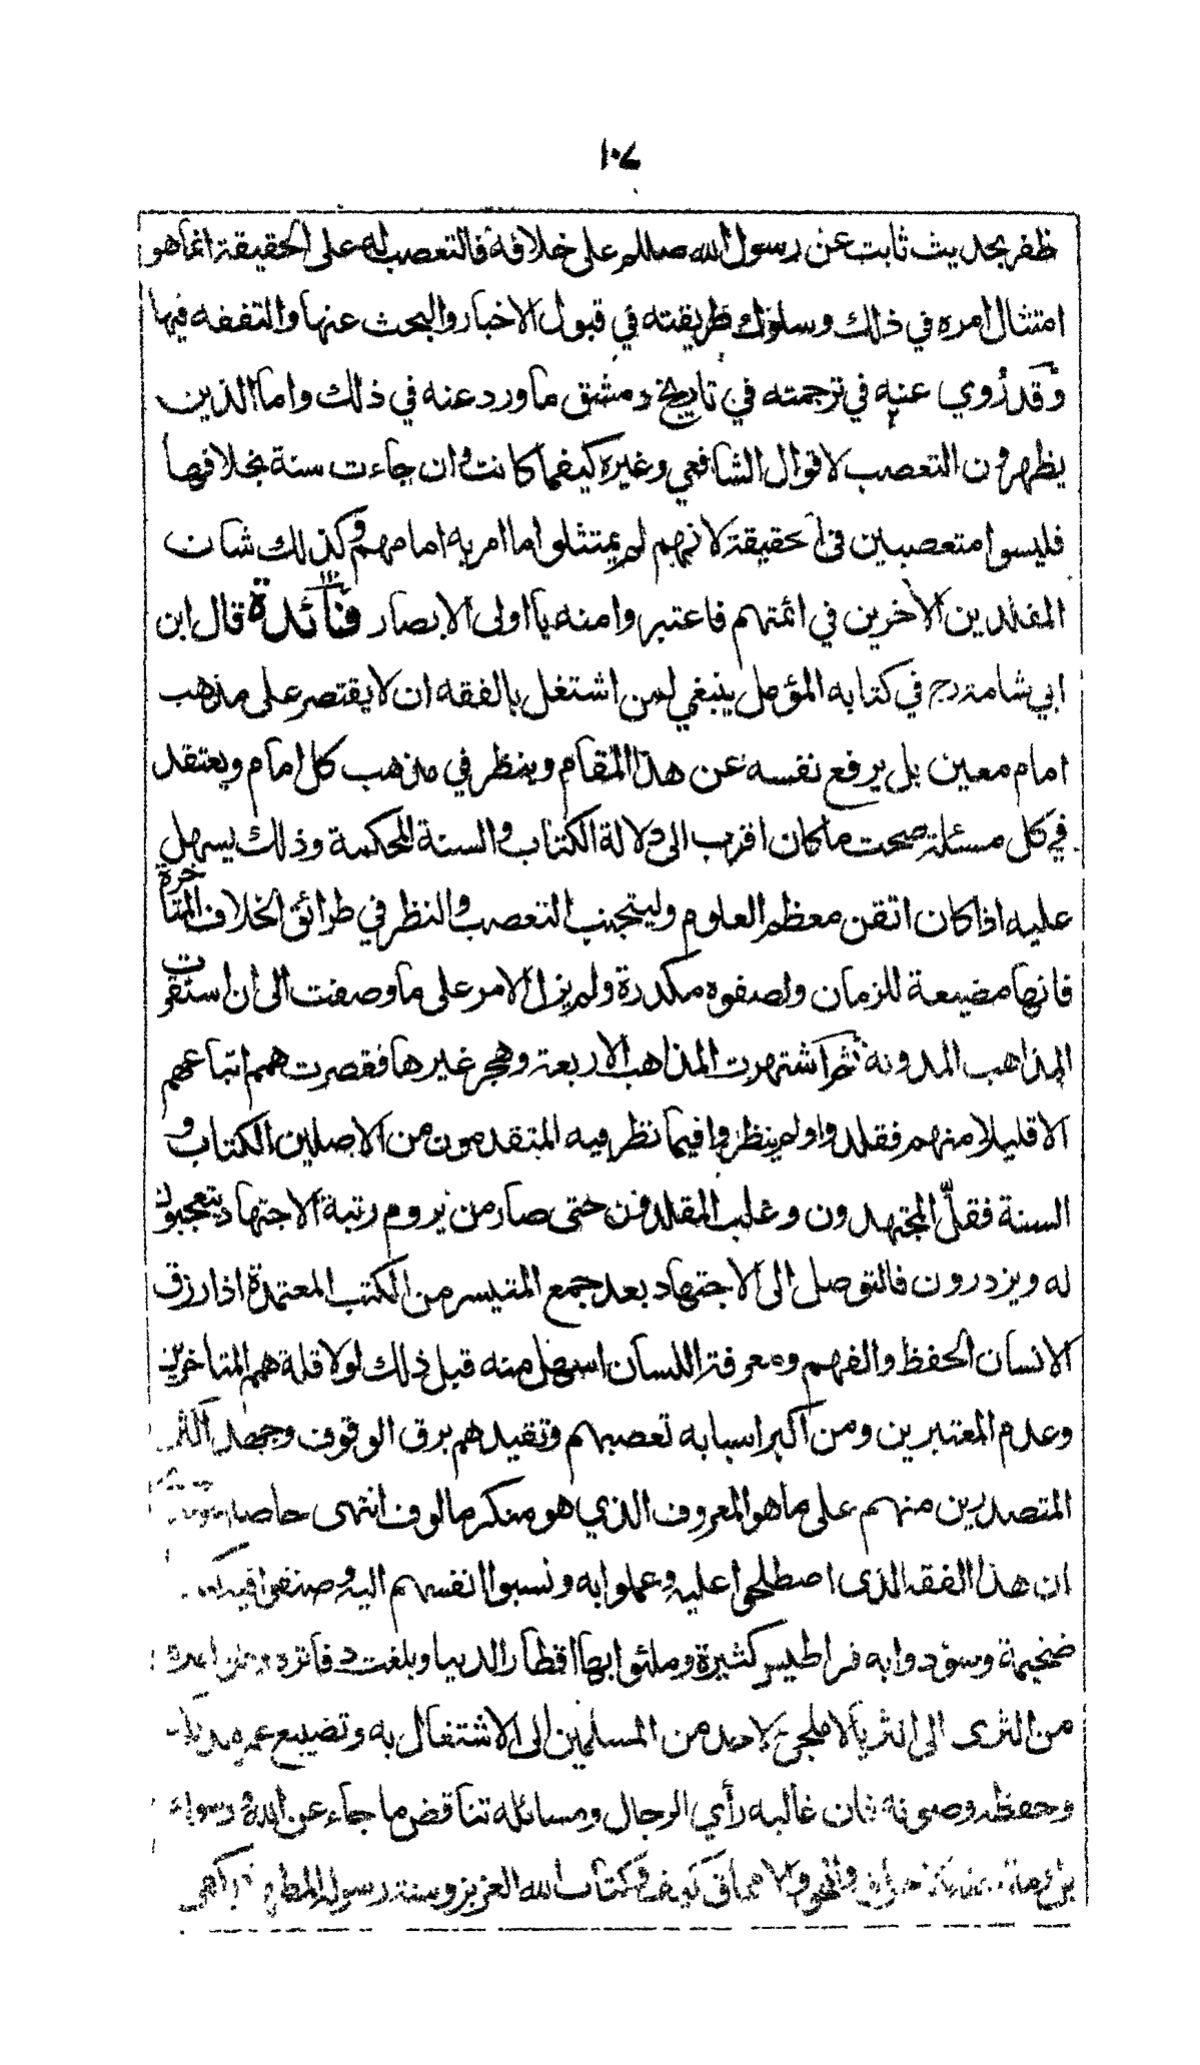 ١٠٧
ظفر بحديث ثابت عن رسول الله صللم على خلافه فالتعصب له على الحقيقة انما هو
امتثال امره في ذلك وسلوك طريقته في قبول الاخبار والبحث عنها والتفقه فيها
وقد روي عنه في ترجمته في تاريخ دمشق ما ورد عنه في ذلك واما الذين
يظهرون التعصب لاقوال الشافعي وغيره كيفما كانت وان جاءت سنة بخلافها
فليسوا متعصبين في الحقيقة لانهم لم يمتثلوا ما امر به امامهم وكذلك شان
المقلدين الأخرين في ائمتهم فاعتبروا منه يا اولى الابصار فائدة قال ابن
ابي شامة رح في كتابه المؤمل ينبغي لمن اشتغل بالفقه ان لا يقتصر على مذهب
امام معين بل يرفع نفسه عن هذا المقام وينظر في مذهب كل امام ويعتقد
في كل مسئلة صحت ما كان اقرب الى دلالة الكتاب والسنة المحكمة وذلك يسهل
عليه اذا كان اتقن معظم العلوم وليتجنب التعصب والنظر في طرائق الخلاف المتاخرة
فانها مضيعة للزمان ولصفوه مكدرة ولم يزل الامر على ما وصفت الى ان استقرت
المذاهب المدونة ثم اشتهرت المذاهب الاربعة وهجر غيرها فقصرت همم اتباعهم
الا قليلا منهم فقلدوا ولم ينظروا فيما نظر فيه المتقدمون من الاصلين الكتاب و
السنة فقلّ المجتهدون وغلب المقلدون حتى صار من يروم رتبة الاجتهاد يتعجبون
له ويزدرون فالتوصل الى الاجتهاد بعد جمع المتيسر من الكتب المعتمدة اذا رزق
الانسان الحفظ والفهم ومعرفة اللسان اسهل منه قبل ذلك لولا قلة همم المتاخرين
وعدم المعتبرين ومن اكبر اسبابه تعصبهم وتقيدهم برق الوقوف وجهل اكثر
المتصدرين منهم على ما هو المعروف الذي هو منكر مالوف انتهى حاصله
ان هذا الفقه الذى اصطلحوا عليه وعملوا به ونسبوا انفسهم اليه وصنفوا فيه
ضخيمة وسودوا به قراطيس كثيرة وملئوا بها اقطار الدنيا وبلغت دفاتره
من الثرى الى الثريا لا ملجئ لاحد من المسلمين الى الاشتغال به وتضييع عمره
وحفظه وصونه فان غالبه رأي الرجال ومسائله تناقض ما جاء عن الله ورسوله
كيف وكتاب الله العزيز وسنة رسوله المطهر